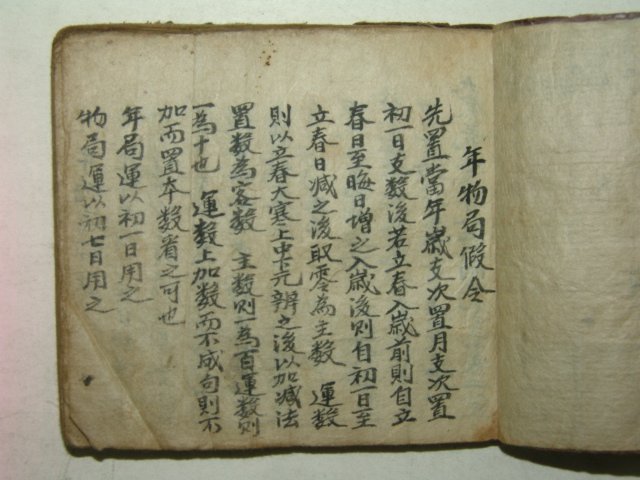 年物局假令
先置當年歲支次置月支次置
初一日支數後若立春入歲前則自立
春日至晦日增之入歲後則自初一日至
立春日減之後取零為主數 運數
則以立春大寒上中下元辨之後以加減法
置數為客數 主數則一為百運數則
一為十也 運數上加數而不成句則不
加而置本數看之可也
年局運以初一日用之
物局運以初七日用之